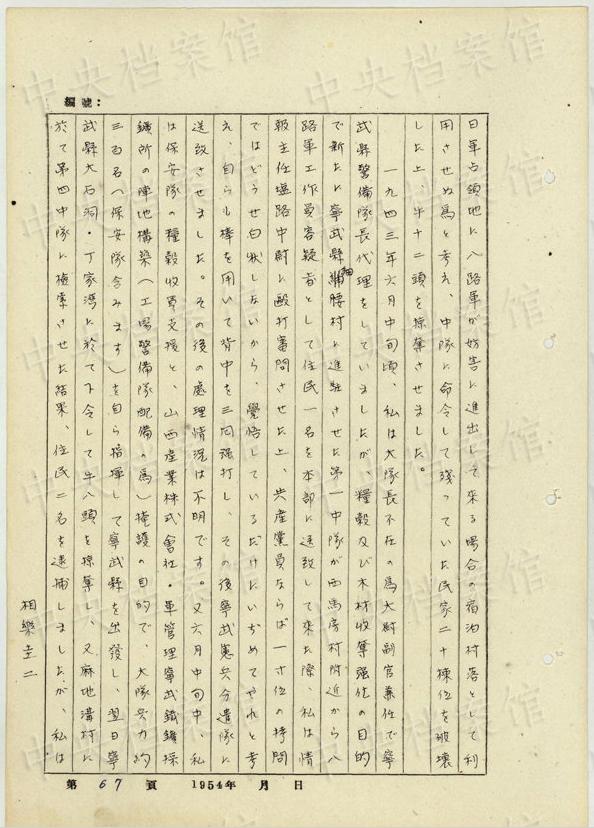 編號:
日軍占領地に八路軍が妨害に進出して来る場合の宿泊村落として利
用させぬ為と考え、中隊に命令して残っていた民家二十棟位を破壊
した上、牛十二頭を掠奪させました。
一九四三年六月中旬頃、私は大隊長不在の為大尉副官兼任で寧
武縣警備隊長代理をしていましたが、糧穀及び木材收奪強化の目的
で新たに寧武縣細腰村に進駐させた第一中隊が西馬房村附近から八
路軍工作員容疑者として住民一名を本部に送致して来た際、私は情
報主任堤路中尉に毆打審問させた上、共産黨員ならば一寸位の拷問
ではどうせ白状しないから、覺悟しているだけにいぢめてやれと考
え、自らも棒を用いて背中を三回強打し、その後寧武憲兵分遣隊に
送致させました。その後の處理情況は不明です。又六月中旬中、私
は保安隊の糧穀收買支援と、山西産業株式會社・軍管理寧武鐵鑛採
鑛所の陣地構築(工場警備隊配備の為)掩護の目的で、大隊兵力約
三百名(保安隊含みます)を自ら指揮して寧武縣を出發し、翌日寧
武縣大石洞・丁家湾に於て下令して牛八頭を掠奪し、又麻地溝村に
於て第四中隊に檢索させた結果、住民二名を逮捕しましたが、私は
相樂圭二
第 67 頁 1954年 月 日
中央档案馆